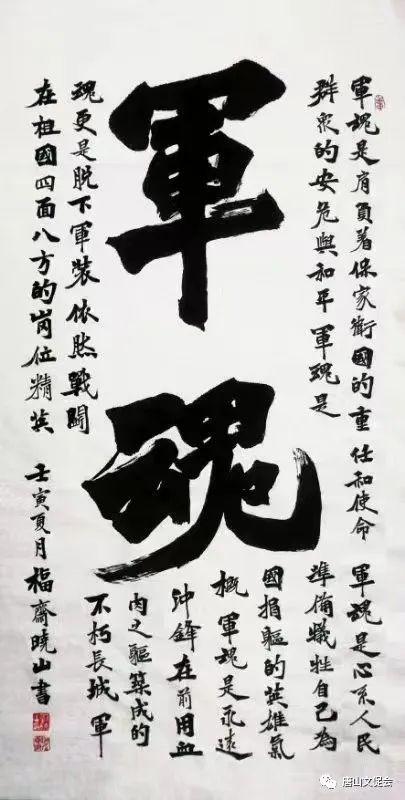 軍魂
軍魂是肩負着保家衛國的重任和使命 軍魂是心系人民
群衆的安危與和平 軍魂是
準備犧牲自己為
國捐軀的英雄氣
概 軍魂是永遠
沖鋒在前用血
肉之軀築成的
不朽長城 軍
魂更是脫下軍裝依然戰鬪
在祖國四面八方的崗位精英 壬寅夏月福齋曉山書
唐山文促会